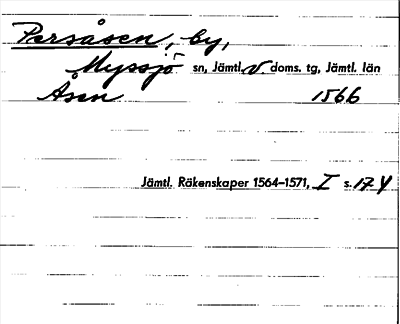 Persåsen, by,
Myssjö sn, Jämtl. v. doms. tg, Jämtl. län
Åsen 1566
Jämtl. Räkenskaper 1564–1571, I s. 174